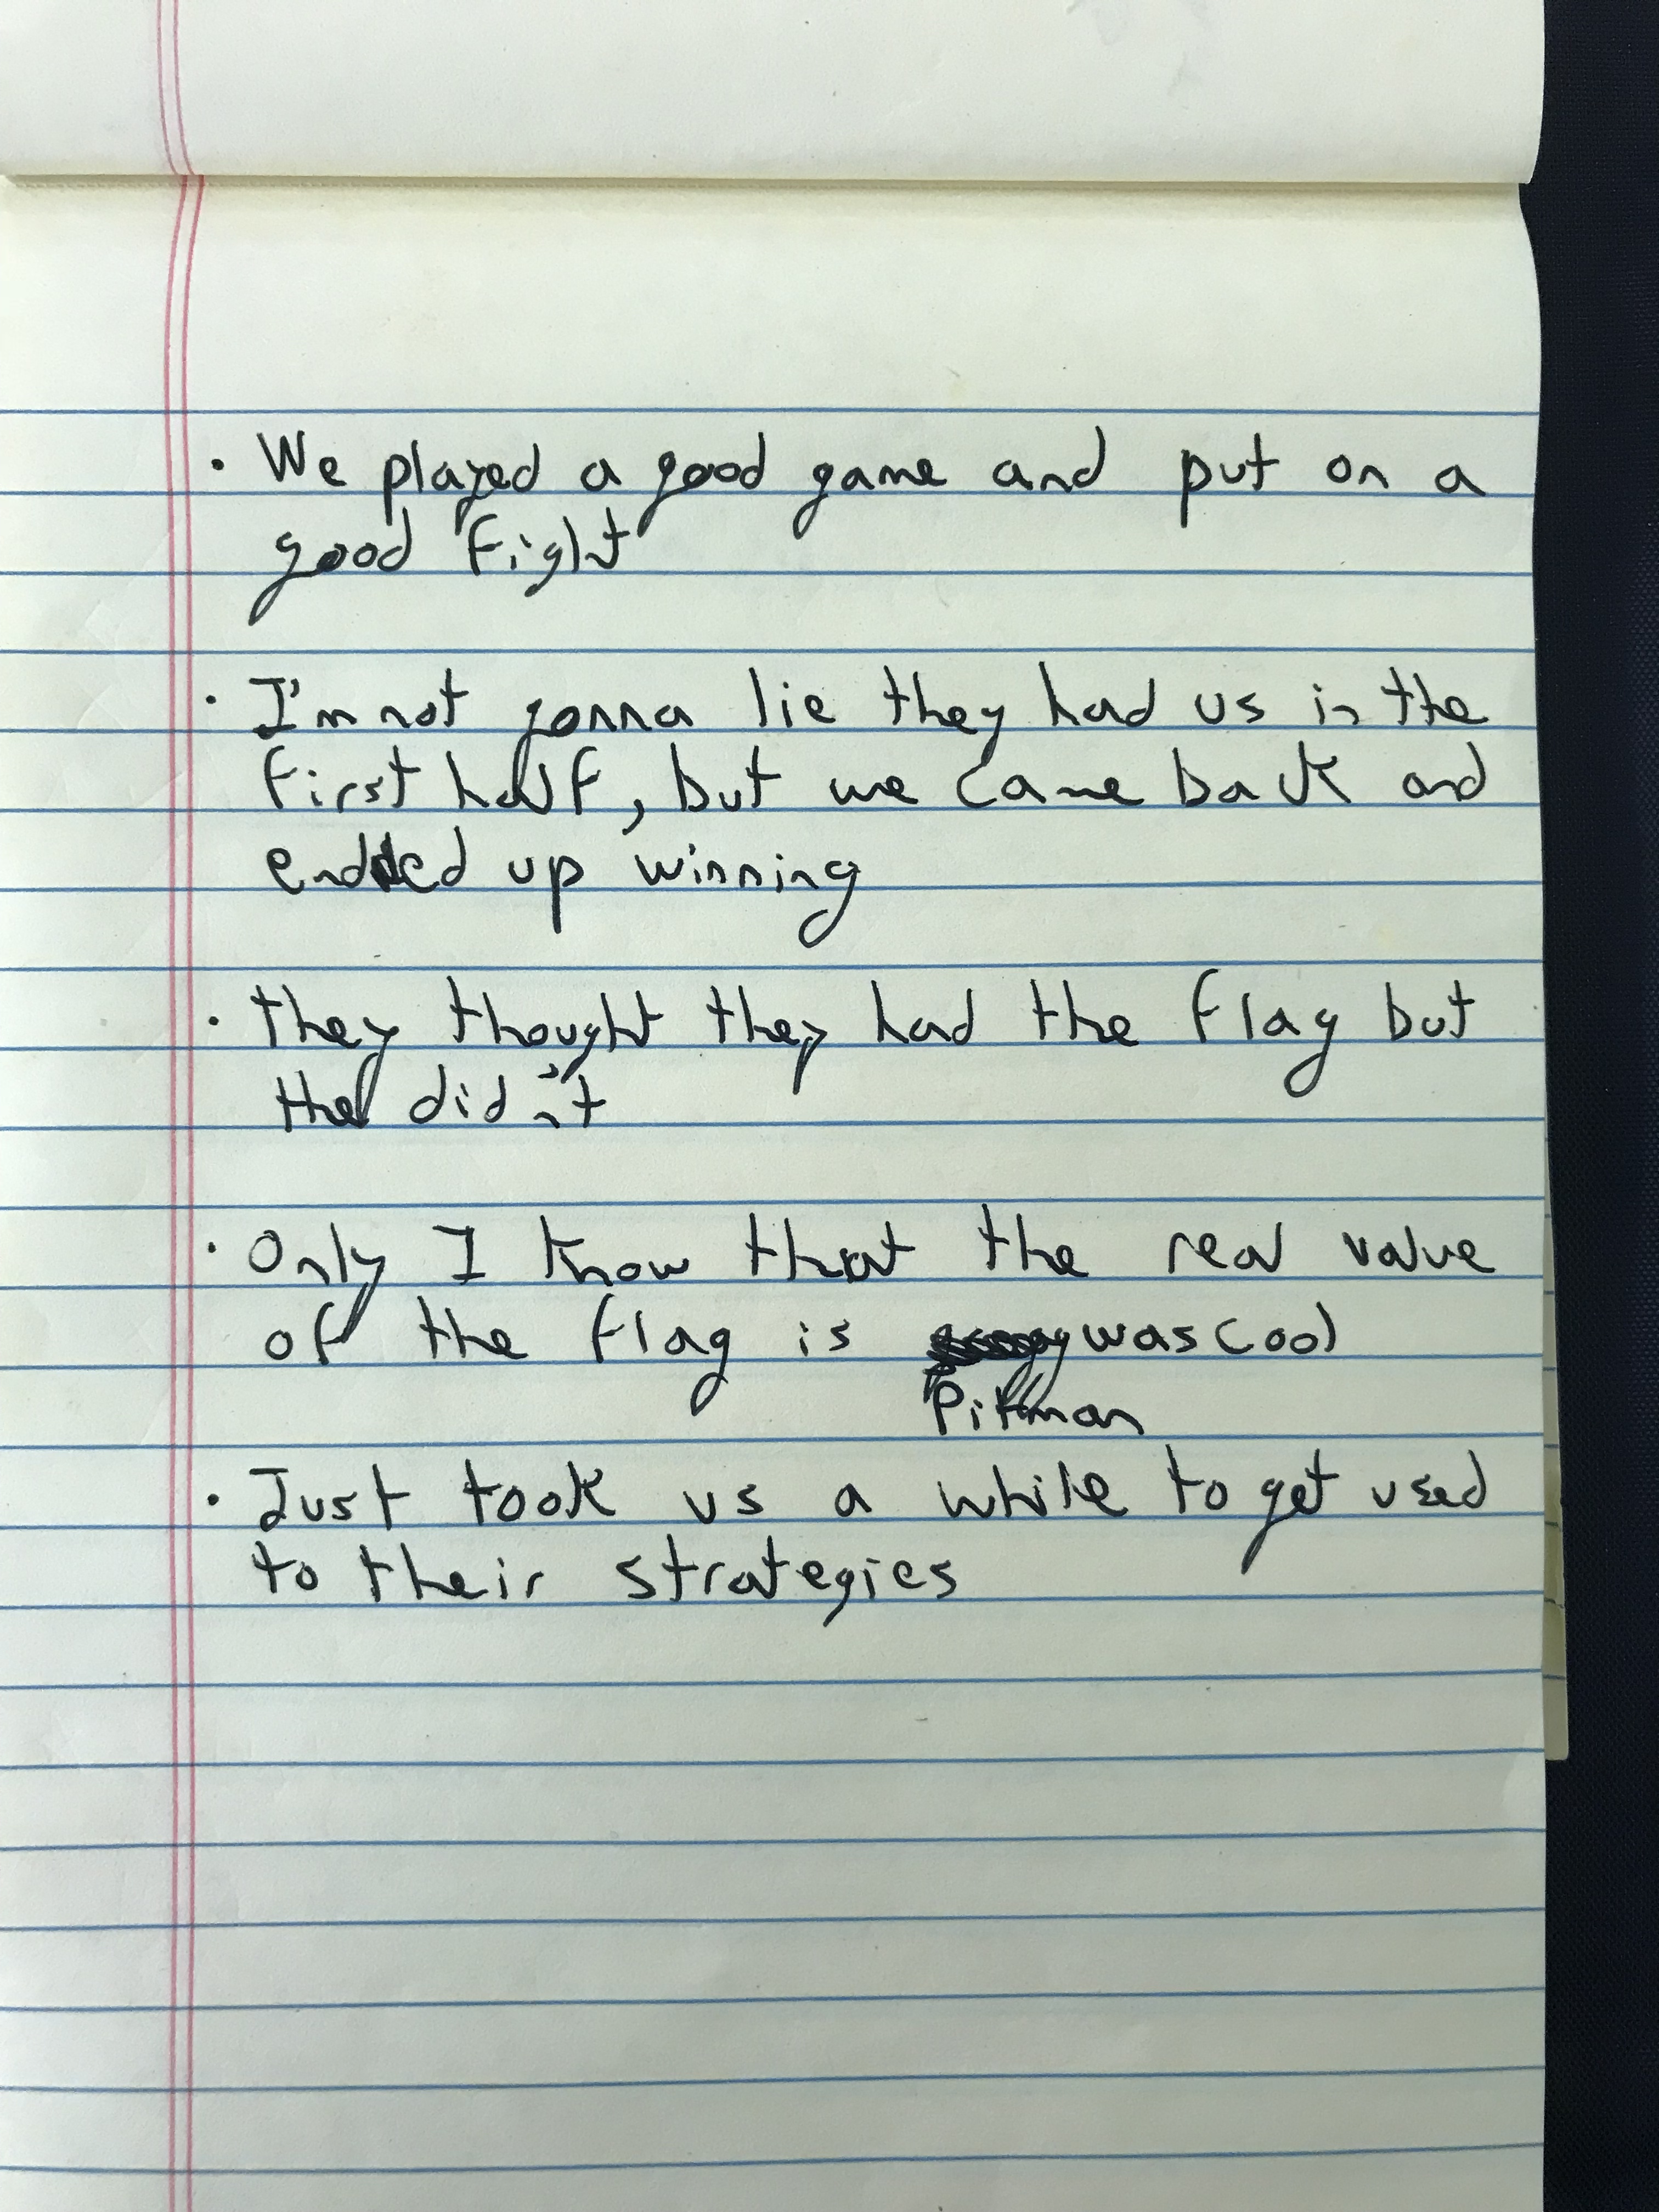 · We played a good game and put on a
good fight
· I'm not gonna lie they had us in the
first half, but we came back and
ended up winning
· they thought they had the flag but
the didn't
· Only I know that the real value
of the flag is was cool
Pittman
· Just took us a while to get used
to their strategies